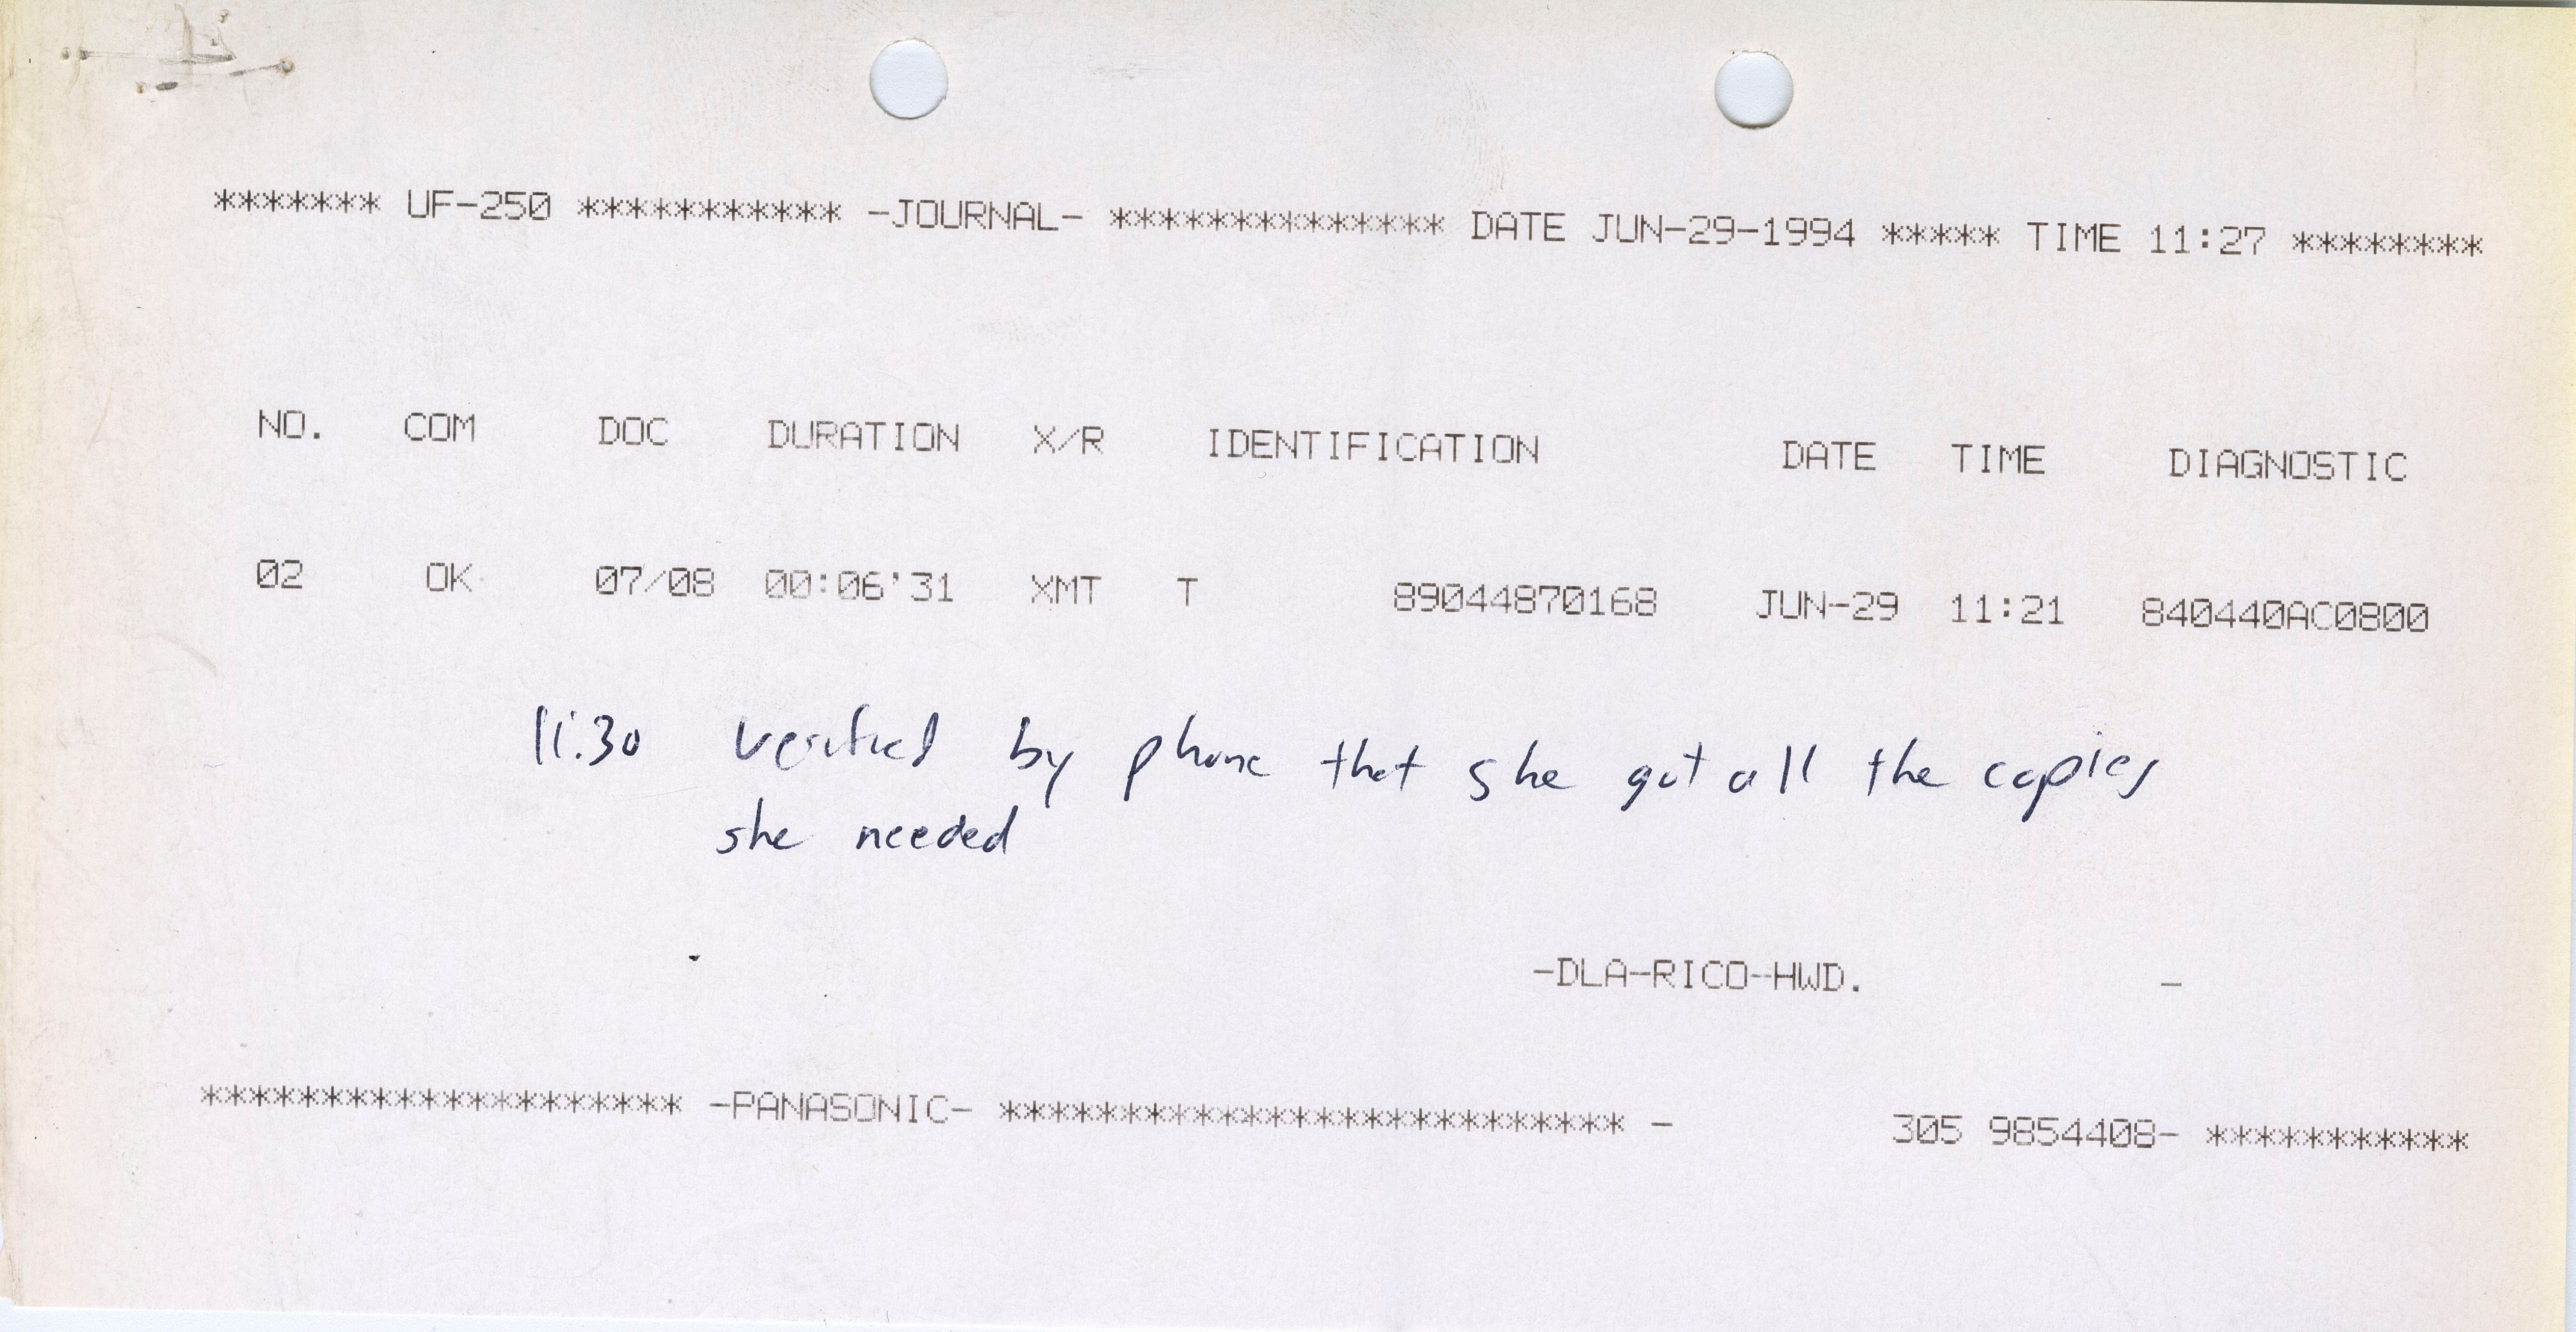 ******* UF-250 *********** -JOURNAL- ************** DATE JUN-29-1994 ***** TIME 11:27 ********
NO. COM DOC DURATION X/R IDENTIFICATION DATE TIME DIAGNOSTIC
02 OK 07/08 00:06'31 XMT T 89044870168 JUN-29 11:21 840440AC0800
11:30 verified by phone that she got all the copies
she needed
-DLA-RICO-HWD. -
******************** -PANASONIC- ************************** - 305 9854408- ***********